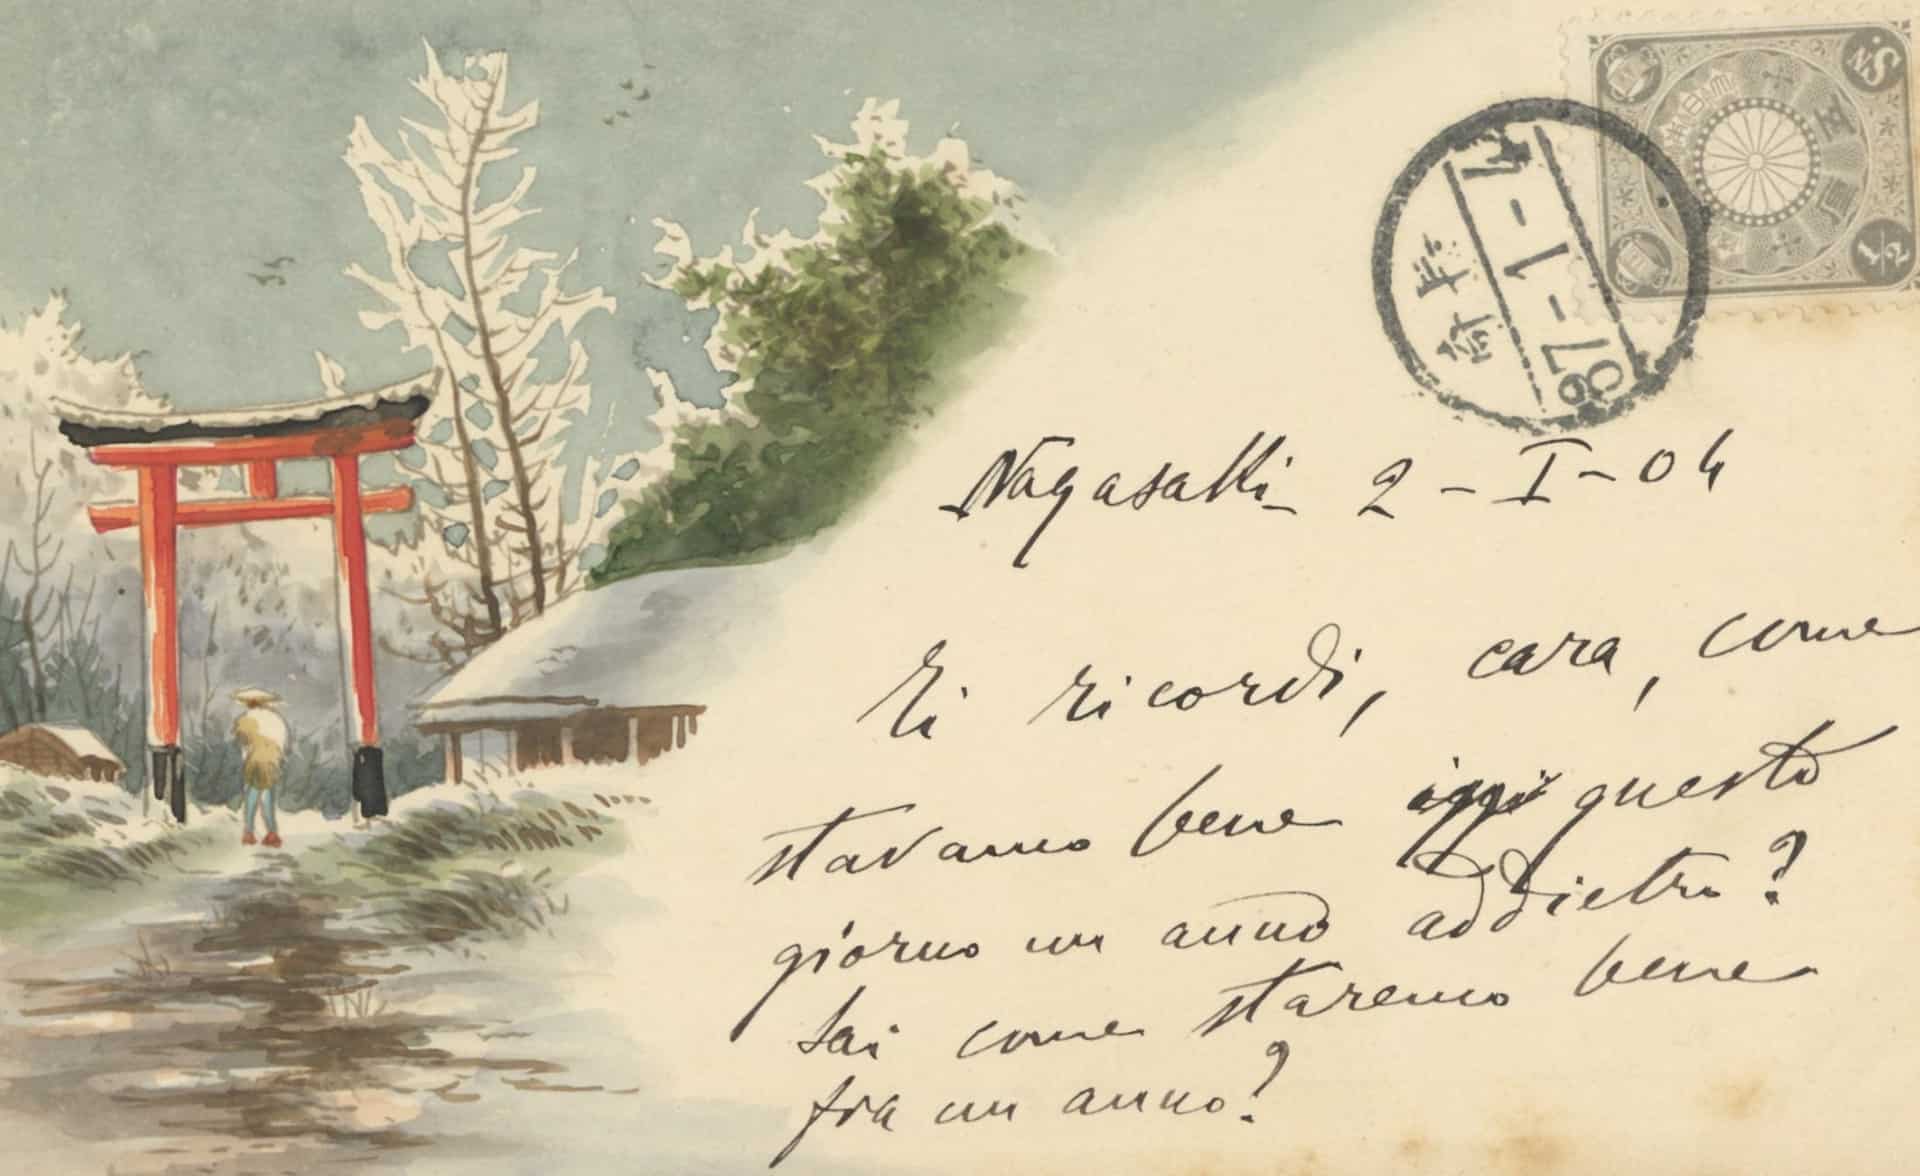 Sn.
1/2
4-1-87
Nagasaki 2-I-04
Ti ricordi, cara, come
stavamo bene oggi questo
giorno un anno addietro?
Sai come staremo bene
fra un anno?